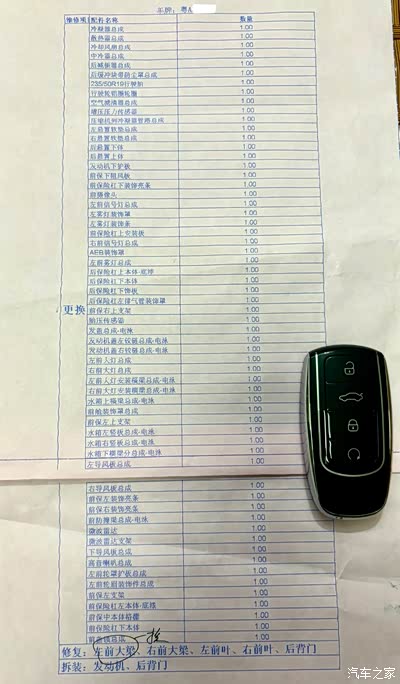 车牌：粤A
维修项 配件名称 数量
冷凝器总成 1.00
散热器总成 1.00
冷却风扇总成 1.00
中冷器总成 1.00
后减振器总成 1.00
后缓冲块带防尘罩总成 1.00
235/50R19行驶胎 1.00
行驶轮铝圈轮辋 1.00
空气滤清器总成 1.00
增压压力传感器 1.00
压缩机到冷凝器管路总成 1.00
左悬置软垫总成 1.00
右悬置软垫总成 1.00
后悬置下体 1.00
后悬置上体 1.00
发动机下护板 1.00
前保下阻风板 1.00
前保险杠下装饰亮条 1.00
前摄像头 1.00
左前信号灯总成 1.00
左雾灯装饰罩 1.00
左雾灯装饰条 1.00
前保险杠上安装板 1.00
右前信号灯总成 1.00
AEB装饰罩 1.00
左前雾灯总成 1.00
后保险杠上本体-底漆 1.00
后保险杠下本体 1.00
后保险杠下饰板 1.00
后保险杠左排气管装饰罩 1.00
更换 前保右上支架 1.00
胎压传感器 1.00
发盖总成-电泳 1.00
发动机盖左铰链总成-电泳 1.00
发动机盖右铰链总成-电泳 1.00
左前大灯总成 1.00
右前大灯总成 1.00
左前大灯安装横梁总成-电泳 1.00
右前大灯安装横梁总成-电泳 1.00
水箱上横梁总成-电泳 1.00
前舱装饰罩总成 1.00
前保左上支架 1.00
水箱左竖板总成-电泳 1.00
水箱右竖板总成-电泳 1.00
水箱下横梁分总成-电泳 1.00
左导风板总成 1.00
右导风板总成 1.00
前保左装饰亮条 1.00
前保右装饰亮条 1.00
前防撞梁总成-电泳 1.00
微波雷达 1.00
微波雷达支架 1.00
下导风板总成 1.00
高音喇叭总成 1.00
左前轮罩护板总成 1.00
左前轮眉装饰件总成 1.00
前保左支架 1.00
前保险杠左本体-底漆 1.00
前保中本体格栅 1.00
前保险杠下本体 1.00
前盖锁总成 1.00
修复：左前大梁、右前大梁、左前叶、右前叶、后背门
拆装：发动机、后背门
汽车之家